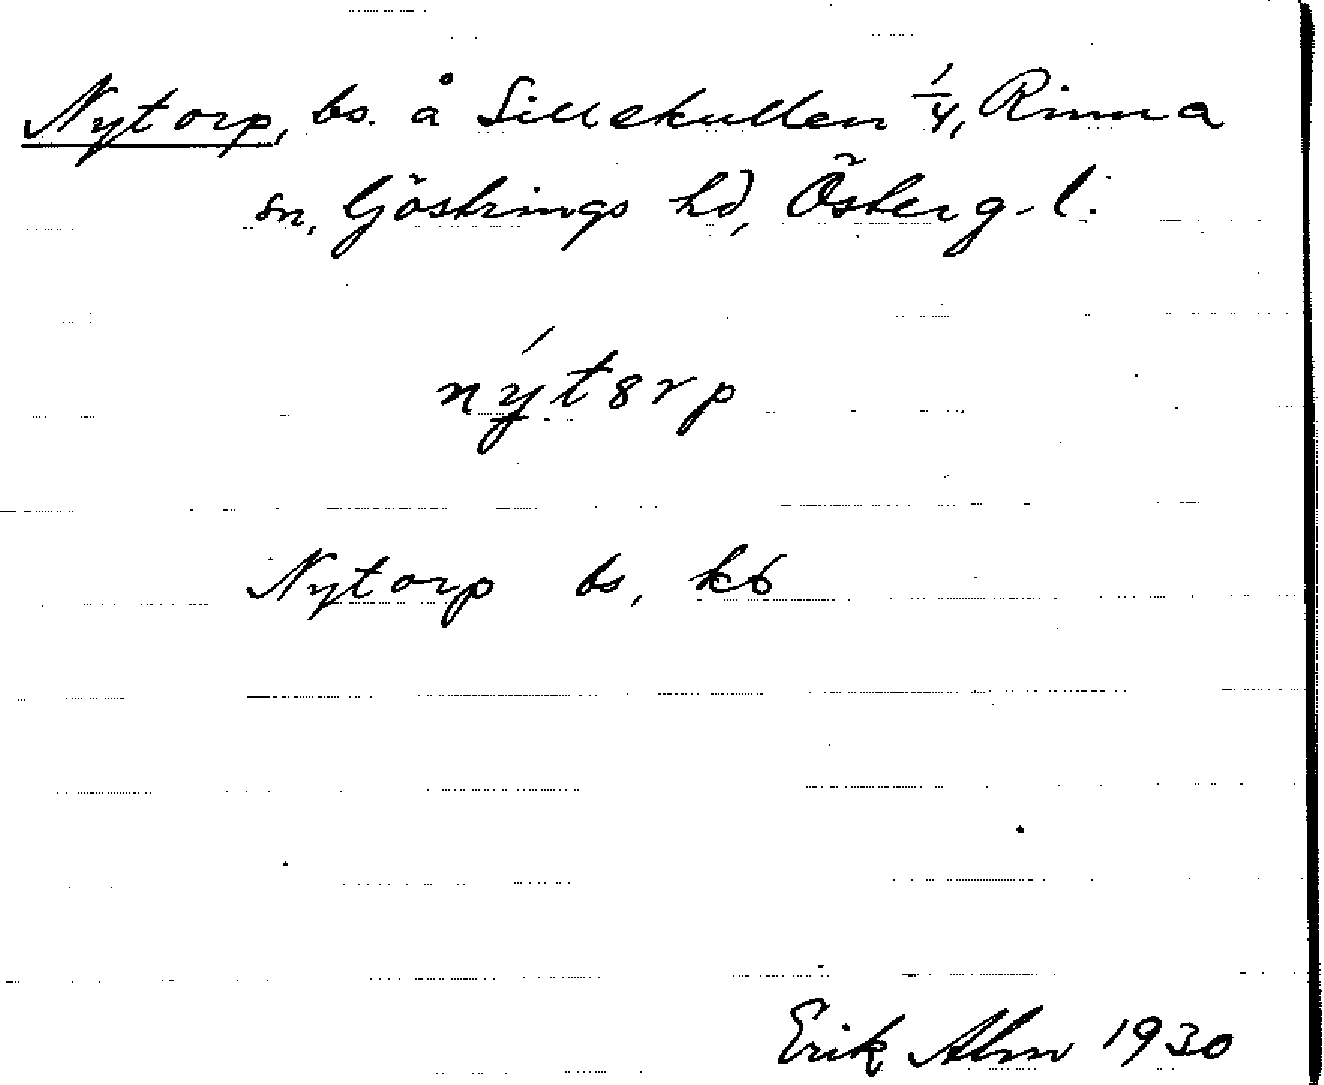 Nytorp, bs. å Sillekullen 1/4, Rinna
sn, Göstrings hd, Österg. l.
nýtȣrp
Nytorp bs, kb
Erik Alm 1930